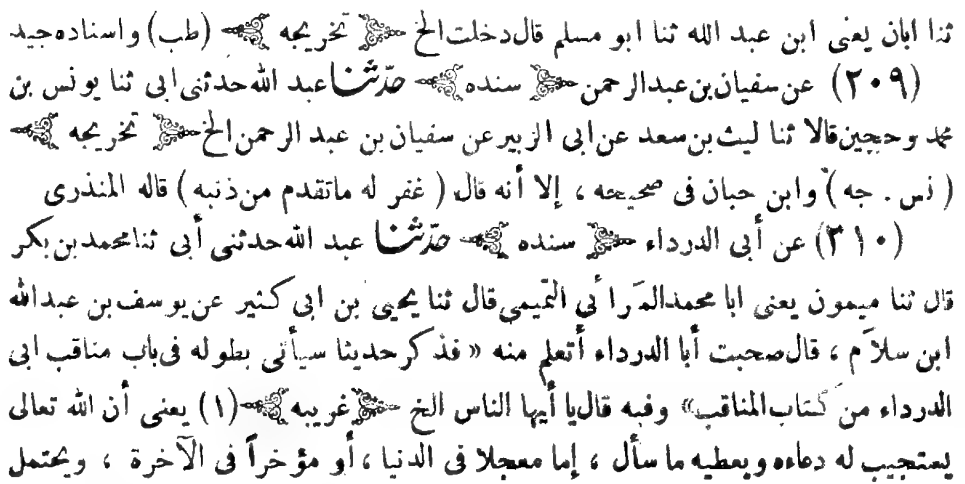 ثنا ابان يعنى ابن عبد الله ثنا ابو مسلم قال دخلت الخ تخريجه (طب) واسناده جيد
(٢٠٩) عن سفيان بن عبد الرحمن سنده حدثنا عبد الله حدثنى ابى ثنا يونس بن
محمد وحجين قالا ثنا ليث بن سعد عن ابى الزبير عن سفيان بن عبد الرحمن الخ تخريجه
( نس . جه ) وابن حبان فى صحيحه ، إلا أنه قال ( غفر له ماتقدم من ذنبه ) قاله المنذرى
(٢١٠) عن أبى الدرداء سنده حدثنا عبد الله حدثنى أبى ثنا محمد بن بكر
قال ثنا ميمون يعنى ابا محمد المرائى التميمى قال ثنا يحيى بن ابى كثير عن يوسف بن عبد الله
ابن سلام ، قال صحبت أبا الدرداء أتعلم منه « فذكر حديثا سيأتى بطوله فى باب مناقب ابى
الدرداء من كتاب المناقب» وفيه قال يا أيها الناس الخ غريبه (١) يعنى أن الله تعالى
يستجيب له دعاءه ويعطيه ما سأل ، إما معجلا فى الدنيا ، أو مؤخراً فى الآخرة ، ويحتمل